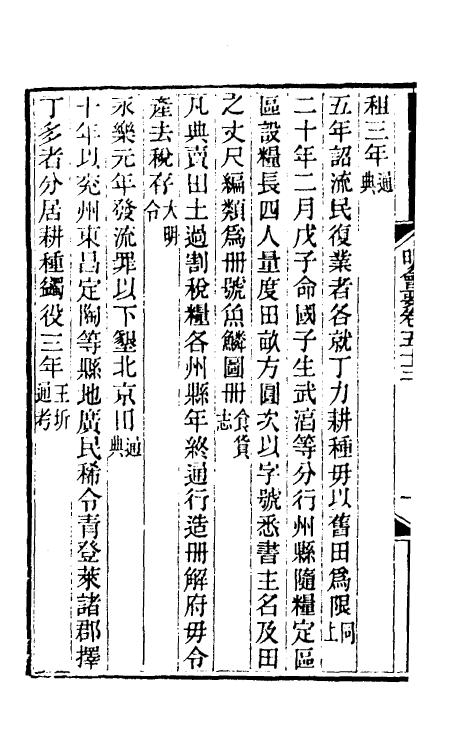 明會要卷五十三
租三年通典
五年詔流民復業者各就丁力耕種毋以舊田爲限同上
二十年二月戊子命國子生武淳等分行州縣隨糧定區
區設糧長四人量度田畝方圓次以字號悉書主名及田
之丈尺編類爲冊號魚鱗圖冊食貨志
凡典賣田土過割稅糧各州縣年終通行造冊解府毋令
產去稅存大明令
永樂元年發流罪以下墾北京田通典
十年以兖州東昌定陶等縣地廣民稀令青登萊諸郡擇
丁多者分居耕種蠲役三年王圻通考